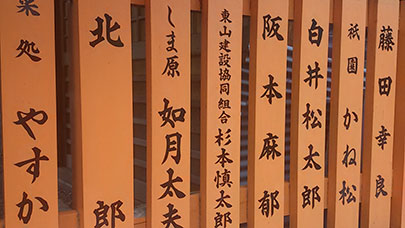 藤田幸良
祇園 かね松
白井松太郎
阪本麻郁
東山建設協同組合 杉本慎太郎
しま原 如月太夫
北 郎
菓処 やすか